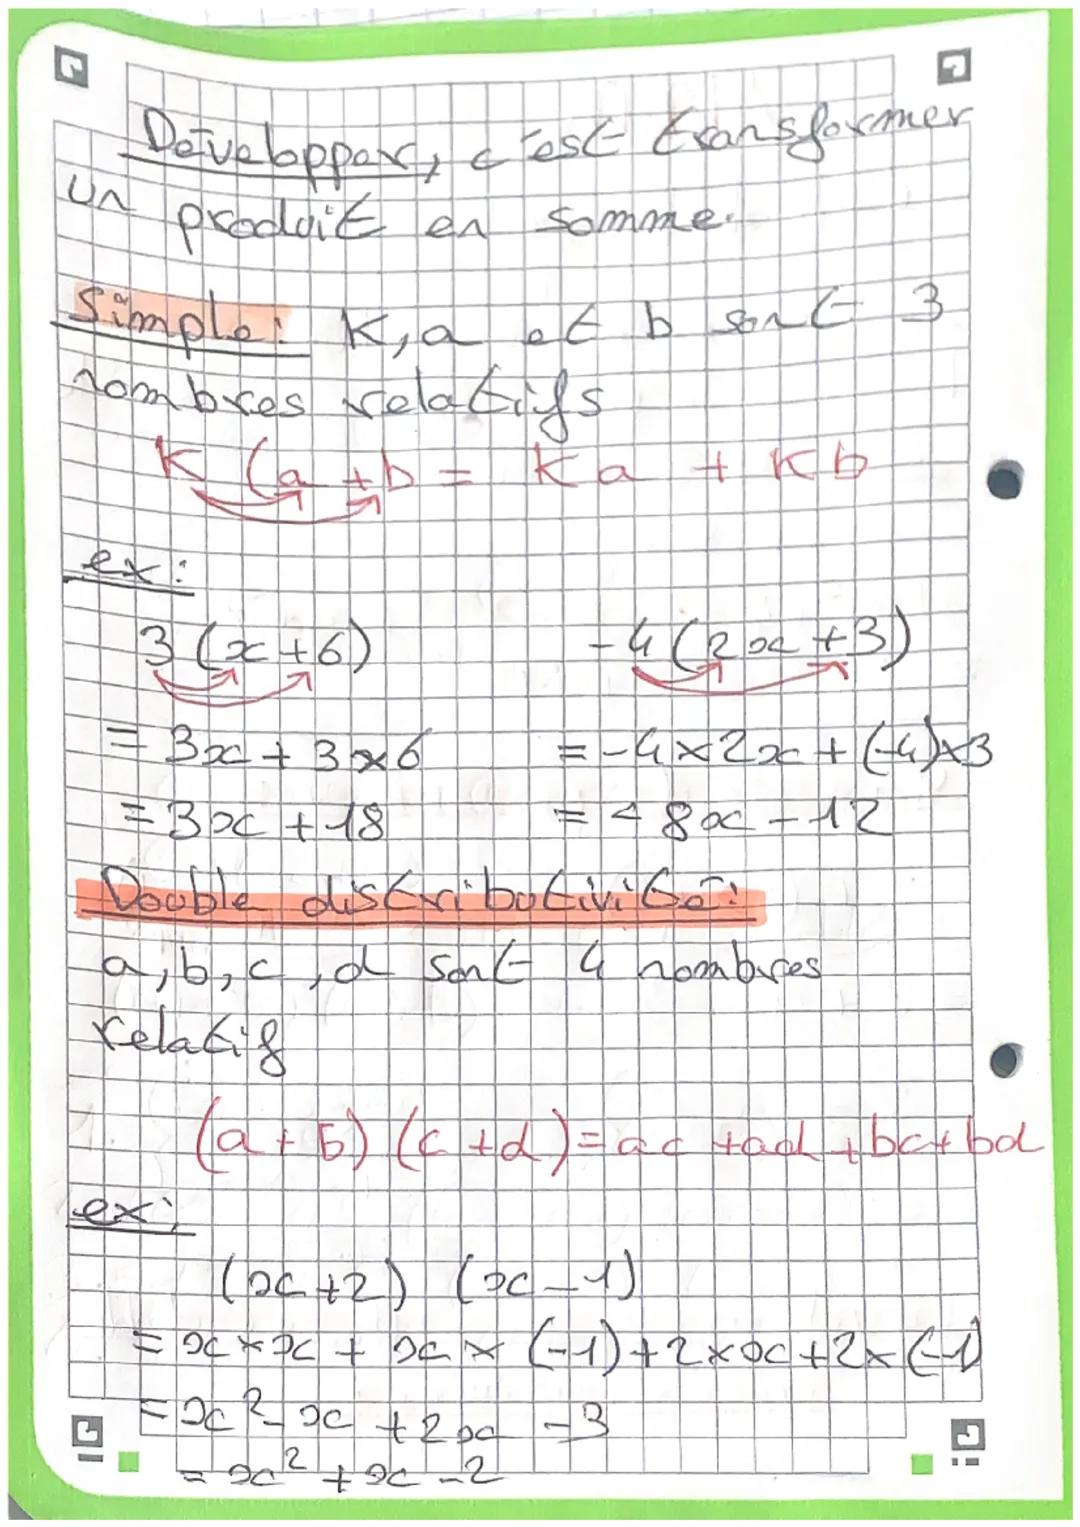 Développer, c'est transformer
un produit en somme.
Simple: K, a et b sont 3
nombres relatifs
K (a + b = Ka + Kb
ex:
3 (x+6)
-4 (2x+3)
= 3x + 3×6
= -4×2x + (-4)×3
= 3x + 18
= - 8x - 12
Double distributivité:
a, b, c, d sont 4 nombres
relatif
(a+b) (c+d) = ac + ad + bc + bd
ex:
(x+2) (x-1)
= x×x + x×(-1) + 2×x + 2×(-1)
= x² - x + 2x - 3
= x² + x - 2